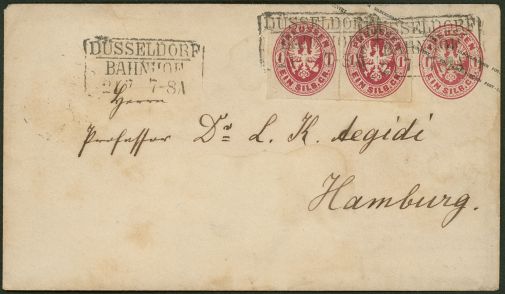 DÜSSELDORF
BAHNHOF
21 7 7-8A
DÜSSELDORF
DÜSSELDORF
PREUSSEN
1 1
EIN SILB.GR.
PREUSSEN
1 1
EIN SILB.GR.
PREUSSEN
1 1
EIN SILB.GR.
Herrn
Professor Dr. L. K. Aegidi
Hamburg.